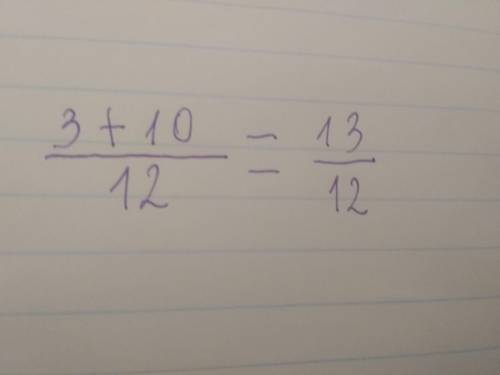 3 + 10 / 12 = 13 / 12